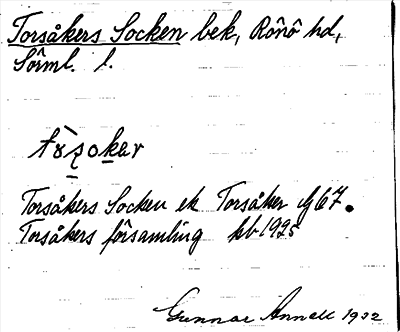 Torsåkers Socken bek, Rönö hd,
Sörml. l.
Torsåkers Socken ek Torsåker
Torsåkers församling kb 1925
Gunnar Annell 1932